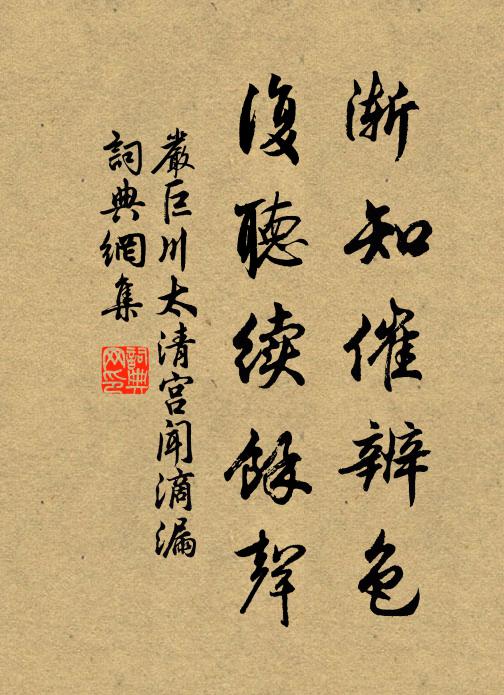 渐知催辨色
復聽续餘聲
嚴巨川太清宫闻滴漏
詞典網集
詞典网印